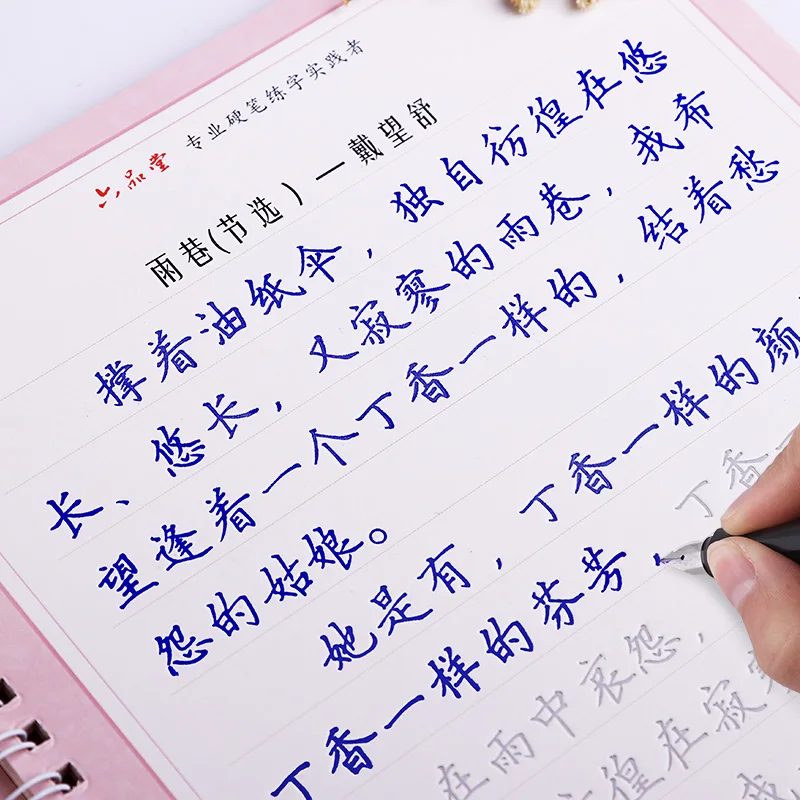 六品堂 专业硬笔练字实践者
雨巷(节选) — 戴望舒
撑着油纸伞，独自彷徨在悠
长、悠长，又寂寥的雨巷，我希
望逢着一个丁香一样的，结着愁
怨的姑娘。
她是有，丁香一样的颜
丁香一样的芬芳，丁香一
在雨中哀怨，
徨在寂寥